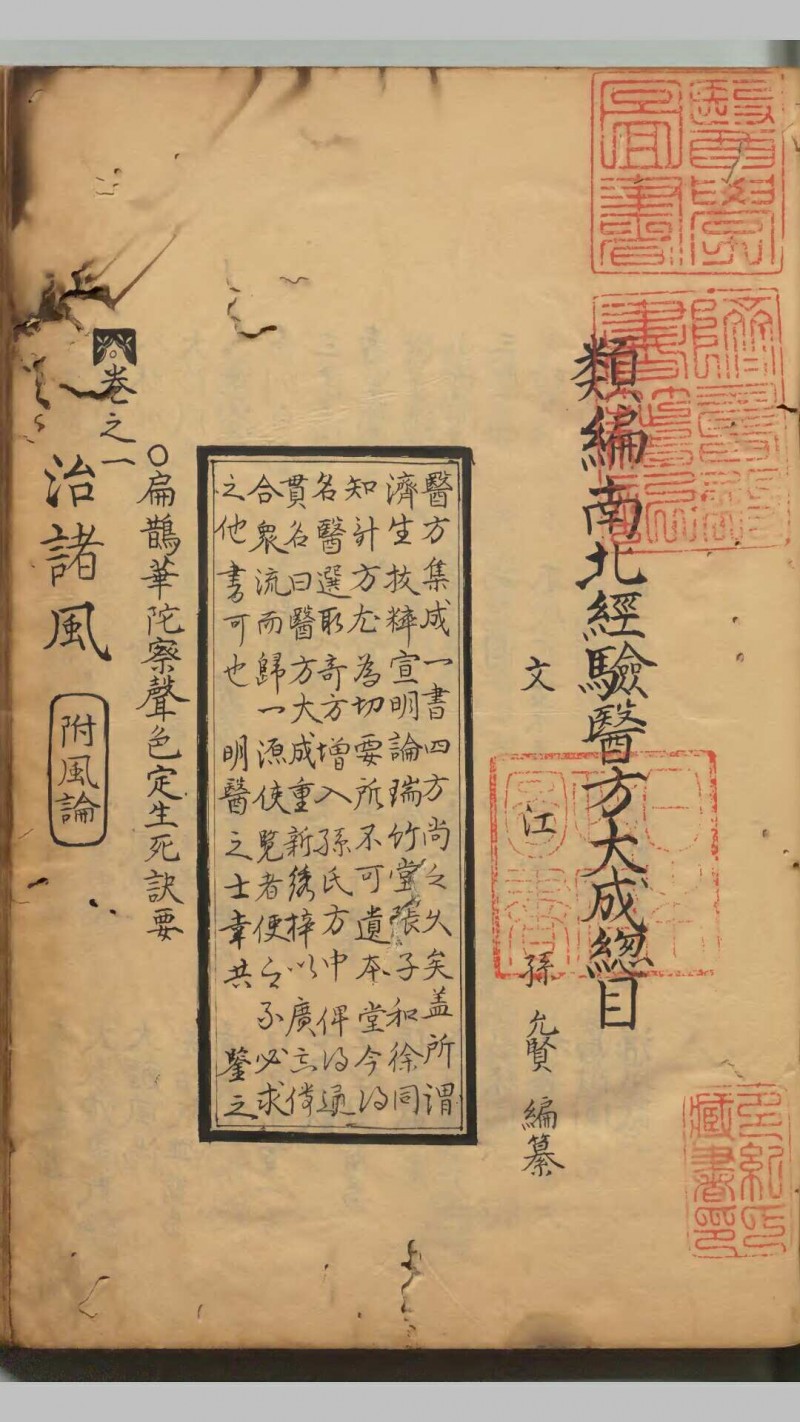 醫學圖書
類編南北經驗醫方大成緫目
文江孫允賢編纂
多紀氏藏書印
醫方集成一書四方尚之久矣盖所謂
濟生拔粹宣明論瑞竹堂張子和徐同
知計方尤為切要所不可遺本堂今得
名醫選取奇方增入孫氏方中俾得通
貫名曰醫方大成重新綉梓以廣其傳
合衆流而歸一源使覽者便之不必求
之他書可也 明醫之士幸共 鑒之
○扁鵲華陀察聲色定生死訣要
卷之一
治諸風 附風論